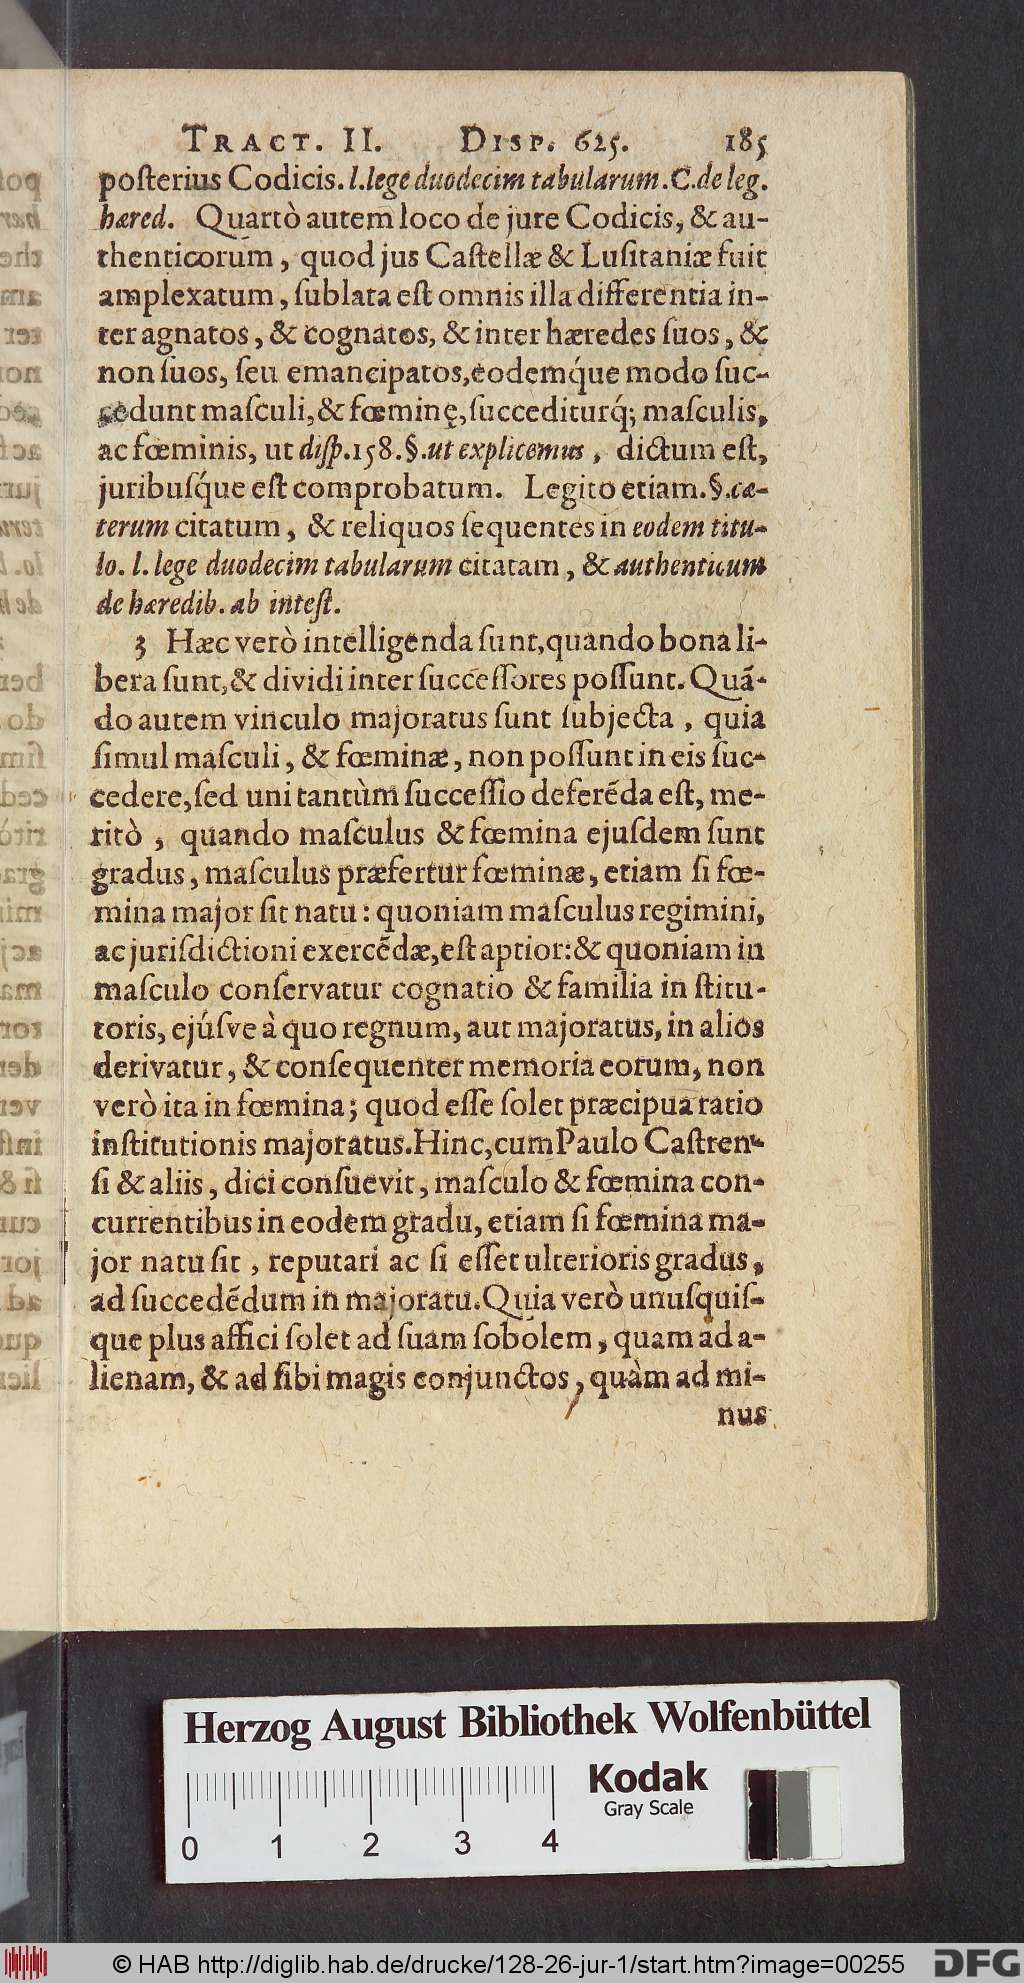 TRACT. II. DISP. 625. 185
poſterius Codicis. l. lege duodecim tabularum. C. de leg.
hæred. Quartò autem loco de jure Codicis, & au-
thenticorum, quod jus Caſtellæ & Luſitaniæ fuit
amplexatum, ſublata eſt omnis illa differentia in-
ter agnatos, & cognatos, & inter hæredes ſuos, &
non ſuos, ſeu emancipatos, eodemq́ue modo ſuc-
cedunt maſculi, & fœminę, ſuccediturq́; maſculis,
ac fœminis, ut diſp. 158. §. ut explicemus, dictum eſt,
juribuſq́ue eſt comprobatum. Legito etiam. §. cæ-
terum citatum, & reliquos ſequentes in eodem titu-
lo. l. lege duodecim tabularum citatam, & authenticum
de hæredib. ab inteſt.
3 Hæc verò intelligenda ſunt, quando bona li-
bera ſunt, & dividi inter ſucceſſores poſſunt. Quã-
do autem vinculo majoratus ſunt ſubjecta, quia
ſimul maſculi, & fœminæ, non poſſunt in eis ſuc-
cedere, ſed uni tantùm ſucceſſio deferẽda eſt, me-
ritò, quando maſculus & fœmina ejuſdem ſunt
gradus, maſculus præfertur fœminæ, etiam ſi fœ-
mina major ſit natu: quoniam maſculus regimini,
ac juriſdictioni exercẽdæ, eſt aptior: & quoniam in
maſculo conſervatur cognatio & familia in ſtitu-
toris, ejúſve à quo regnum, aut majoratus, in alios
derivatur, & conſequenter memoria eorum, non
verò ita in fœmina; quod eſſe ſolet præcipua ratio
inſtitutionis majoratus. Hinc, cum Paulo Caſtren-
ſi & aliis, dici conſuevit, maſculo & fœmina con-
currentibus in eodem gradu, etiam ſi fœmina ma-
jor natu ſit, reputari ac ſi eſſet ulterioris gradus,
ad ſuccedẽdum in majoratu. Quia verò unuſquiſ-
que plus affici ſolet ad ſuam ſobolem, quam ad a-
lienam, & ad ſibi magis conjunctos, quàm ad mi-
nus
Herzog August Bibliothek Wolfenbüttel
Kodak
Gray Scale
0 1 2 3 4
© HAB http://diglib.hab.de/drucke/128-26-jur-1/start.htm?image=00255
DFG